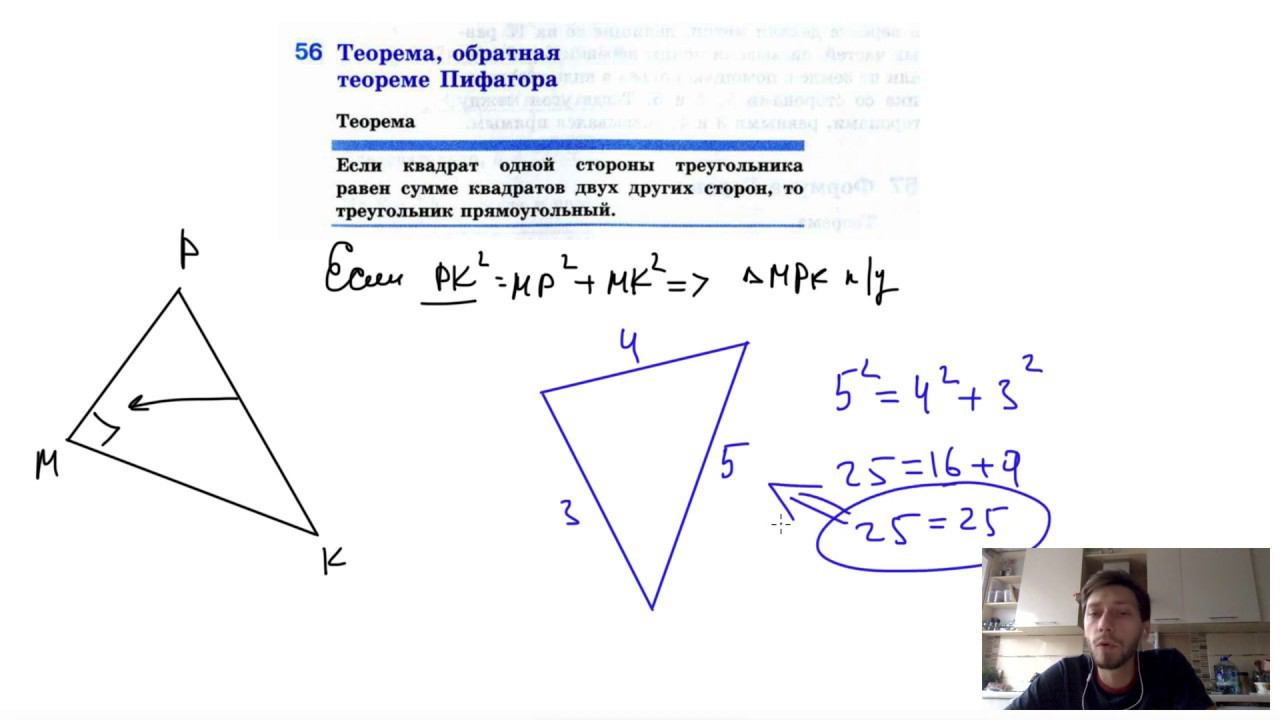 56 Теорема, обратная
теореме Пифагора
Теорема
Если квадрат одной стороны треугольника
равен сумме квадратов двух других сторон, то
треугольник прямоугольный.
Если PK²=MP²+MK²=> ΔMPK п/у
P
M
K
4
3
5
5²=4²+3²
25=16+9
25=25